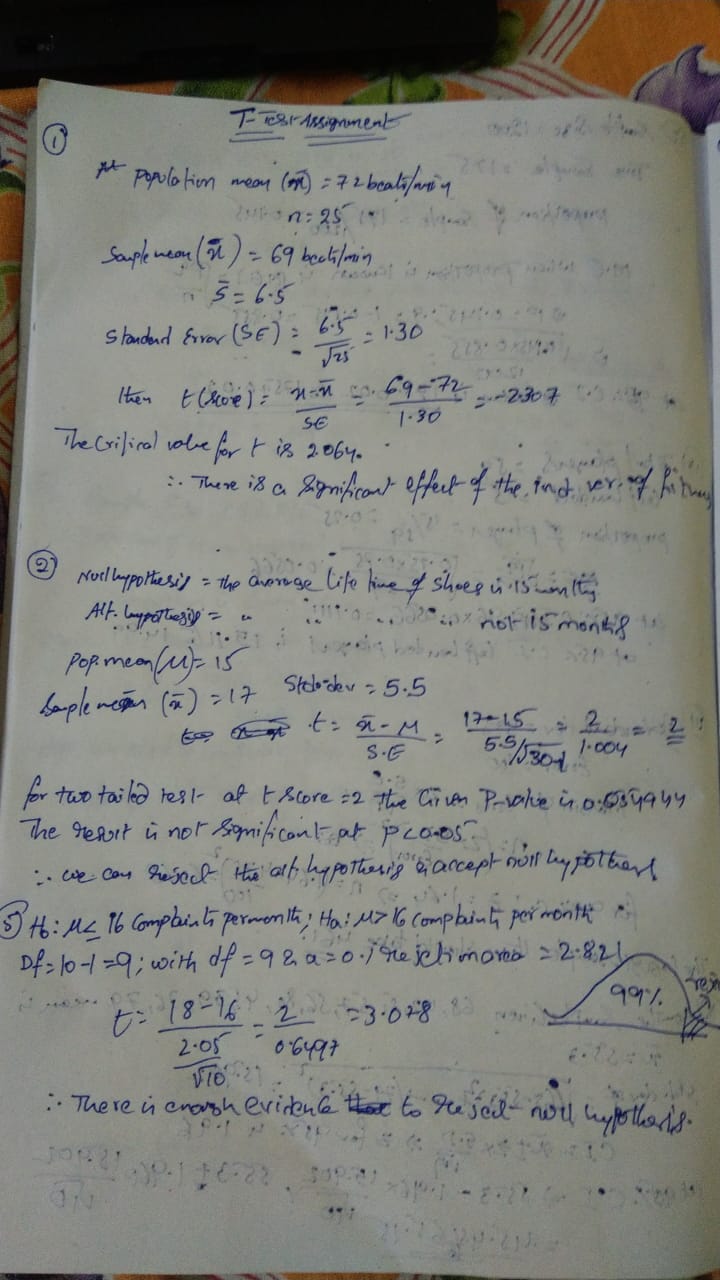 T-Test Assignment
①
Population mean (x̄) = 72 beats/min
n = 25
Sample mean (x̄) = 69 beats/min
S̄ = 6.5
Standard Error (SE) = 6.5/√25 = 1.30
then t(score) = x-x̄/SE = 69-72/1.30 = -2.307
The Critical value for t is 2.064.
∴ There is a significant effect of the ind. var. of
②
Null hypothesis = the average life time of shoes is 15 months
Alt. hypothesis = " " " " not 15 months
Pop. mean (μ) = 15
Sample mean (x̄) = 17 Std. dev = 5.5
t = x̄-μ/S.E = 17-15/5.5/√30 = 2/1.004 = 2
for two tailed test at t score = 2 the Given P-value is 0.054944
The result is not significant at p<0.05.
∴ we can reject the alt. hypothesis & accept null hypothesis
⑤ H₀: μ≤ 16 Complaints per month; Ha: μ> 16 complaints per month
Df = 10-1 = 9; with df = 9 & a = 0.1 rejection area = 2.821
99%
t = 18-16/2.05/√10 = 2/0.6497 = 3.078
∴ There is enough evidence to reject null hypothesis.